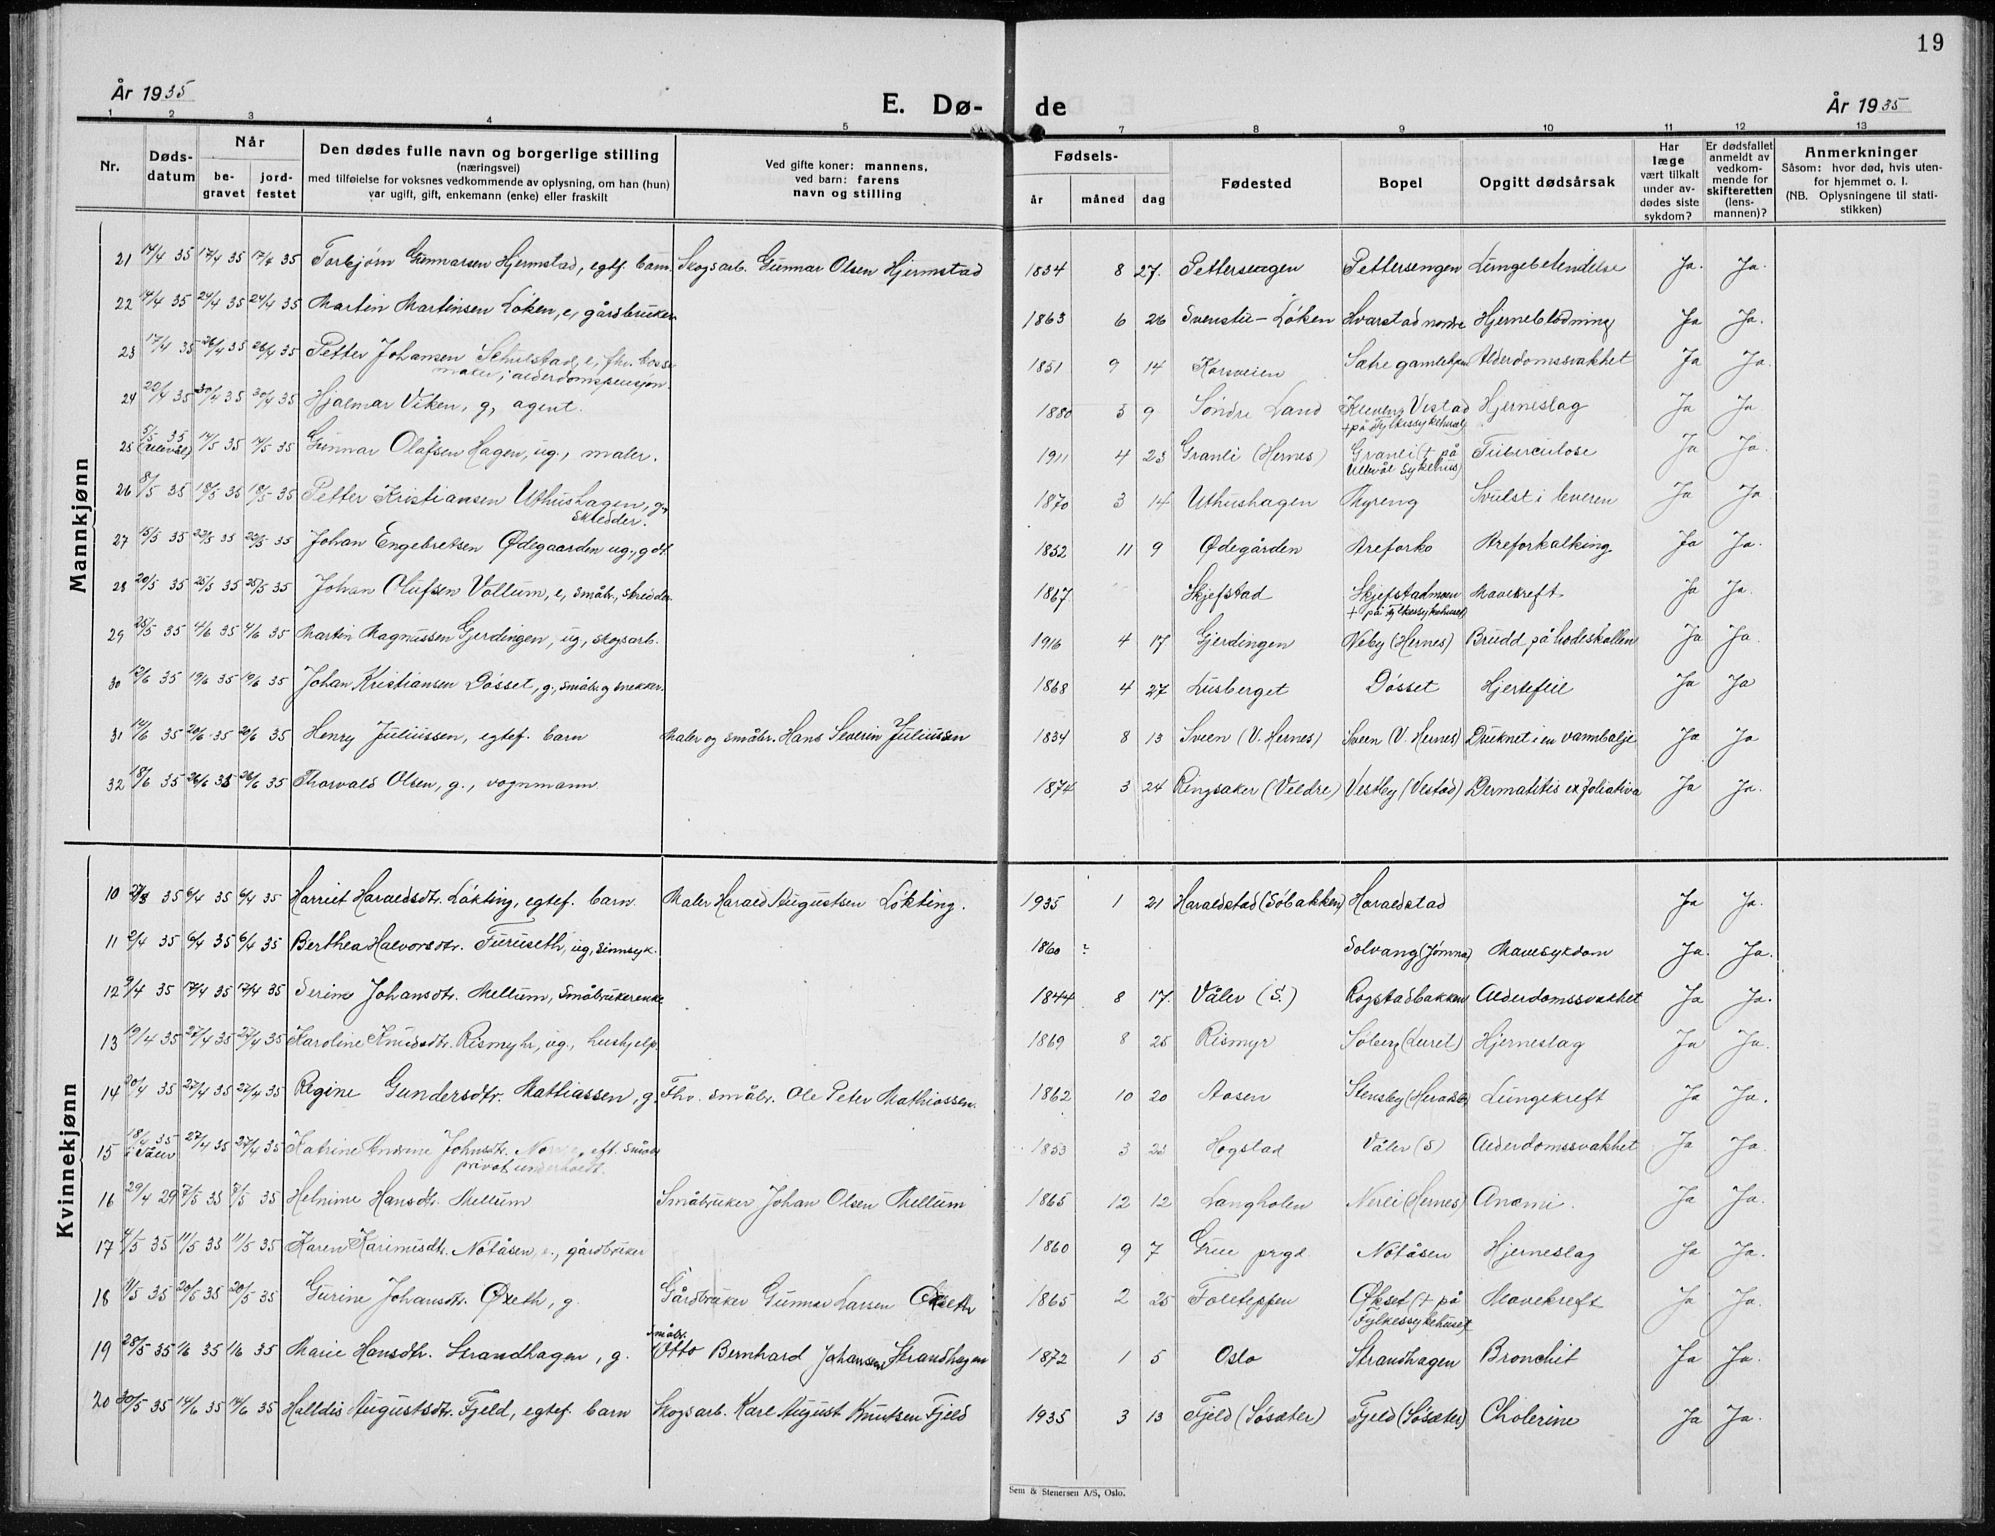 19
År 1935
E. Dø-
de
År 1935
1 2 3 4 5
7 8 9 10 11 12 13
Nr.
Døds-
datum
Når
be-
gravet
jord-
festet
Den dødes fulle navn og borgerlige stilling
(næringsvei)
med tilføielse for voksnes vedkommende av oplysning, om han (hun)
var ugift, gift, enkemann (enke) eller fraskilt
Ved gifte koner: mannens,
ved barn: farens
navn og stilling
Fødsels-
år
måned
dag
Fødested
Bopel
Opgitt dødsårsak
Har
læge
vært tilkalt
under av-
dødes siste
sykdom?
Er dødsfallet
anmeldt av
vedkom-
mende for
skifteretten
(lens-
mannen)?
Anmerkninger
Såsom: hvor død, hvis uten-
for hjemmet o. l.
(NB. Oplysningene til stati-
stikken)
Mannkjønn
21 14/4 35 17/4 35 17/4 35 Torbjørn Gunnarsen Hjermstad, egtf. barn. Skogsarb. Gunnar Olsen Hjermstad 1934 8 27. Pettersengen Pettersengen Lungebetendelse Ja. Ja.
22 14/4 35 24/4 35 24/4 35 Martin Martinsen Løken, e, gårdbruker 1863 6 26 Svenstu-Løken Hvarstad nordre Hjerneblødning Ja Ja.
23 17/4 35 26/4 35 26/4 35 Petter Johansen Schulstad, e, fhv.
maler; alderdomspensjon 1851 9 14 Korsveien Sætre gamlehjem Alderdomssvakhet Ja Ja
24 22/4 35 30/4 35 30/4 35 Hjalmar Viken, g, agent. 1880 5 9 Søndre Land Kleven, Vestad
+ på Fylkessykehuset Hjerneslag Ja Ja
25 5/5 35
(Ullevål) 14/5 35 14/5 35 Gunnar Olafsen Hagen, ug., maler. 1911 4 23 Granli (Hernes) Granli (+ på
Ullevål Sykehus) Tuberculose Ja Ja.
26 8/5 35 18/5 35 18/5 35 Petter Kristiansen Uthushagen, g,
skredder. 1870 3 14 Uthushagen Myreng Svulst i leveren Ja Ja.
27 15/5 35 22/5 35 22/5 35 Johan Engebretsen Ødegaarden ug., 1852 11 9 Ødegården Areforko Areforkalkning Ja Ja.
28 20/5 35 25/5 35 25/5 35 Johan Olufsen Vollum, e, småbr, skredder 1867 Skjefstad Skjefstadmoen
+ på Fylkessykehuset Mavekreft Ja Ja.
29 28/5 35 4/6 35 4/6 35 Martin Magnussen Gjerdingen, ug, skogsarb. 1916 4 17 Gjerdingen Neby (Hernes) Brudd på hodeskallen Ja Ja.
30 12/6 35 19/6 35 19/6 35 Johan Kristiansen Døsset, g, småbr. og snekker. 1868 4 27 Lusberget Døsset Hjertefeil Ja Ja
31 14/6 35 20/6 35 20/6 35 Henry Juliussen, egtef. barn Maler og småbr. Hans Severin Juliussen 1934 8 13 Sveen (V. Hernes) Sveen (V. Hernes) Druknet i en vannbalje Ja Ja
32 18/6 35 26/6 35 26/6 35 Thorvald Olsen, g., vognmann 1874 3 24 Ringsaker (Veldre) Vestby (Vestad) Dermatitis exfoliativa Ja Ja.
Kvinnekjønn
10 27/3 35 6/4 35 6/4 35 Harriet Haraldsdtr. Løkting, egtef. barn. Maler Harald Augustsen Løkting. 1935 1 21 Haraldstad (Søbakken) Haraldstad Ja Ja.
11 2/4 35 6/4 35 6/4 35 Berthea Halvorsdtr. Furuseth, ug, sinnsyk. 1860 ? Solvang (Jømna) Mavesykdom Ja. Ja.
12 9/4 35 17/4 35 17/4 35 Serine Johansdtr. Mellum, småbrukerenke 1844 8 17. Våler (S.) Rogstadbakken Alderdomssvakhet Ja Ja.
13 19/4 35 27/4 35 27/4 35 Karoline Knudsdtr. Rismyhr, ug., hushjelp. 1869 8 25 Rismyr Søberg (Luret) Hjerneslag Ja Ja.
14 20/4 35 27/4 35 27/4 35 Regine Gundersdtr. Mathiassen, g. Fhv. småbr. Ole Peter Mathiassen. 1862 10 20 Aasen Stensby Lungekreft Ja Ja.
15 18/4 35
i Våler 27/4 35 27/4 35 Katrine Andrine Johnsdtr. eft. småbr
privat underholdt. 1853 3 23 Hogstad Våler (S) Alderdomssvakhet Ja Ja.
16 29/4 29 7/5 35 7/5 35 Helmine Hansdtr. Mellum Småbruker Johan Olsen Mellum 1865 12 12 Langholen Nerli (Hernes) Anæmi. Ja Ja.
17 4/5 35 11/5 35 11/5 35 Karen Karimusdtr. Notåsen, e., gårdbruker 1860 9 7 Grue prgd Notåsen Hjerneslag Ja Ja.
18 11/5 35 20/5 35 20/5 35 Gurine Johansdtr. Øxeth, g. Gårdbruker Gunnar Larsen Øxeth 1865 2 25 Foleteppen Økset (+ på
Fylkessykehuset Mavekreft Ja Ja.
19 28/5 35 1/6 35 1/6 35 Marie Hansdtr. Strandhagen, g. småbr.
Otto Bernhard Johansen Strandhagen 1872 1 5 Oslo Strandhagen Bronchit Ja Ja.
20 30/5 35 14/6 35 14/6 35 Halldis Augustsdtr. Fjeld, egtef. barn Skogsarb. Karl August Knutsen Fjeld 1935 3 13 Fjeld (Søsæter) Fjeld (Søsæter) Cholerine Ja Ja.
Sem & Stenersen A/S, Oslo.